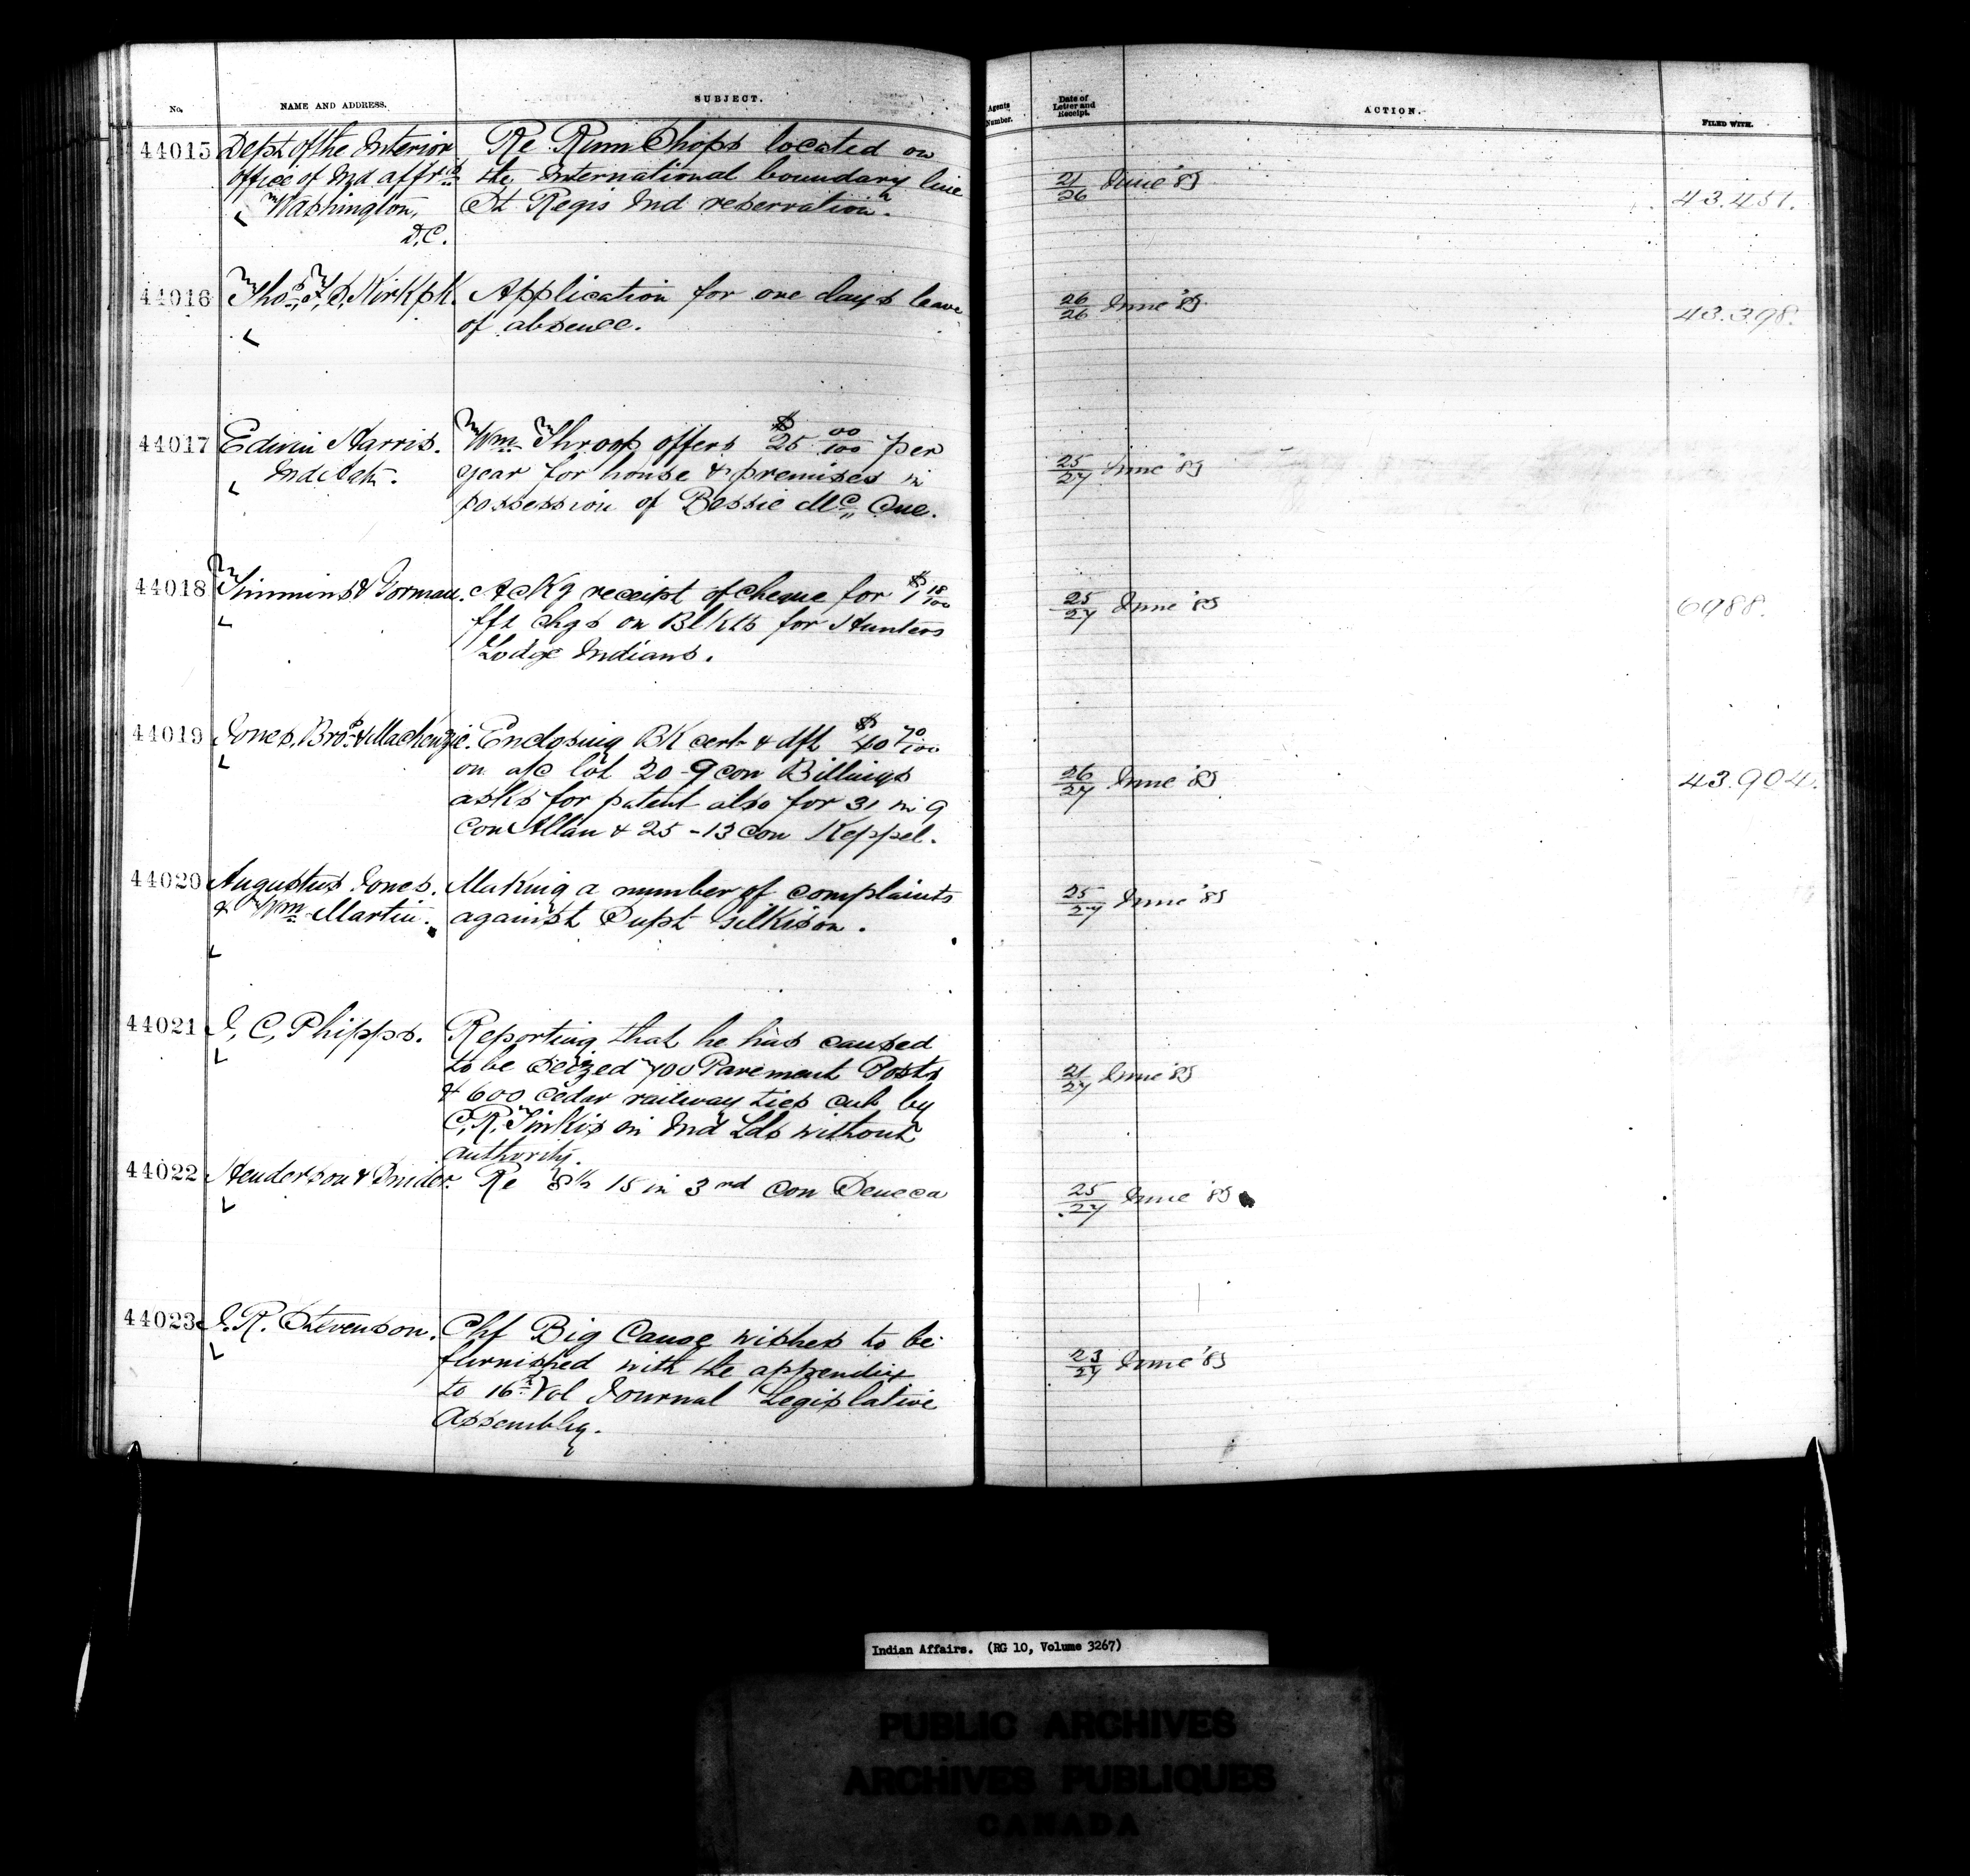 No.
NAME AND ADDRESS.
SUBJECT.
Agents Number.
Date of Letter and Receipt.
ACTION.
FILED WITH.
44015 Dept of the Interior Re Rum Shops located on
office of Ind affrs the International boundary line 21/26 June '85
Washington, St Regis Ind reservation. 43.451.
D.C.
44016 Thos. F. S. Kirkpk. Application for one days leave 26/26 June '85
of absence. 43.398.
44017 Edwin Harris. Wm Throop offers $25 00/100 per
Ind Agt. year for house & premises in 25/27 June '85
possession of Bessie Mc Cue.
44018 Timmins & Gorman. Ackg receipt of cheque for $1 18/100 25/27 June '85 6988.
frt chgs on Blkts for Hunters
Lodge Indians.
44019 Jones, Bros & Mackenzie. Enclosing BK cert & dft $40 70/100
on a/c lot 20 - 9 con Billings 26/27 June '85 43.904.
asks for patent also for 31 in 9
con Allan & 25 - 13 con Keppel.
44020 Augustus Jones. Making a number of complaints 25/27 June '85
& Wm Martin. against Supt Gilkison.
44021 J. C. Phipps. Reporting that he has caused
to be seized 700 Pavement Posts 21/27 June '85
& 600 cedar railway ties cut by
C. R. on Ind Lds without
authority.
44022 Henderson & Snider. Re 15 in 3rd con Seneca 25/27 June '85
44023 J. R. Stevenson. Chf Big Canoe wishes to be
furnished with the appendix 23/27 June '85
to 16th Vol Journal Legislative
Assembly.
Indian Affairs. (RG 10, Volume 3267)
PUBLIC ARCHIVES
ARCHIVES PUBLIQUES
CANADA